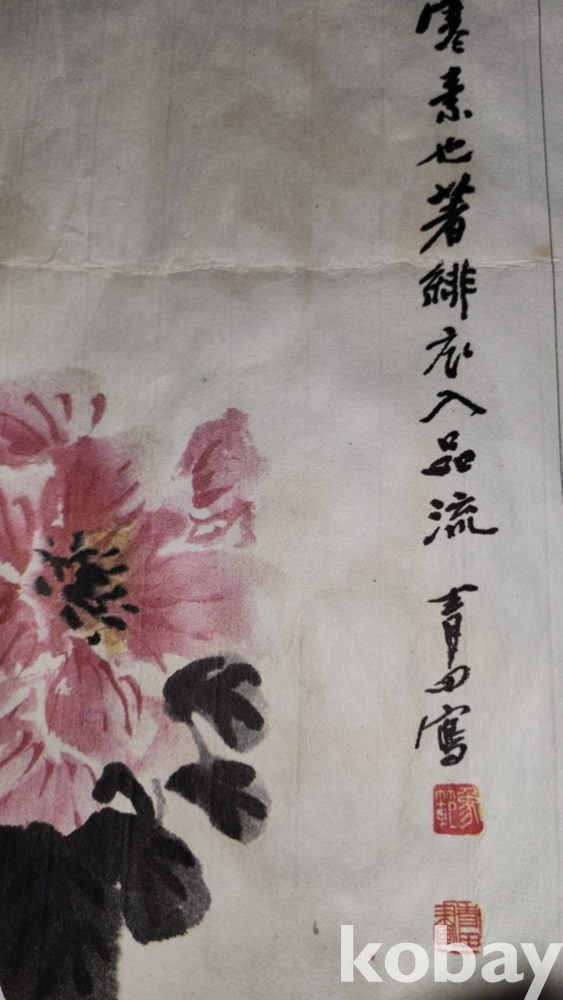 寒素也著緋衣入品流
青田寫
kobay